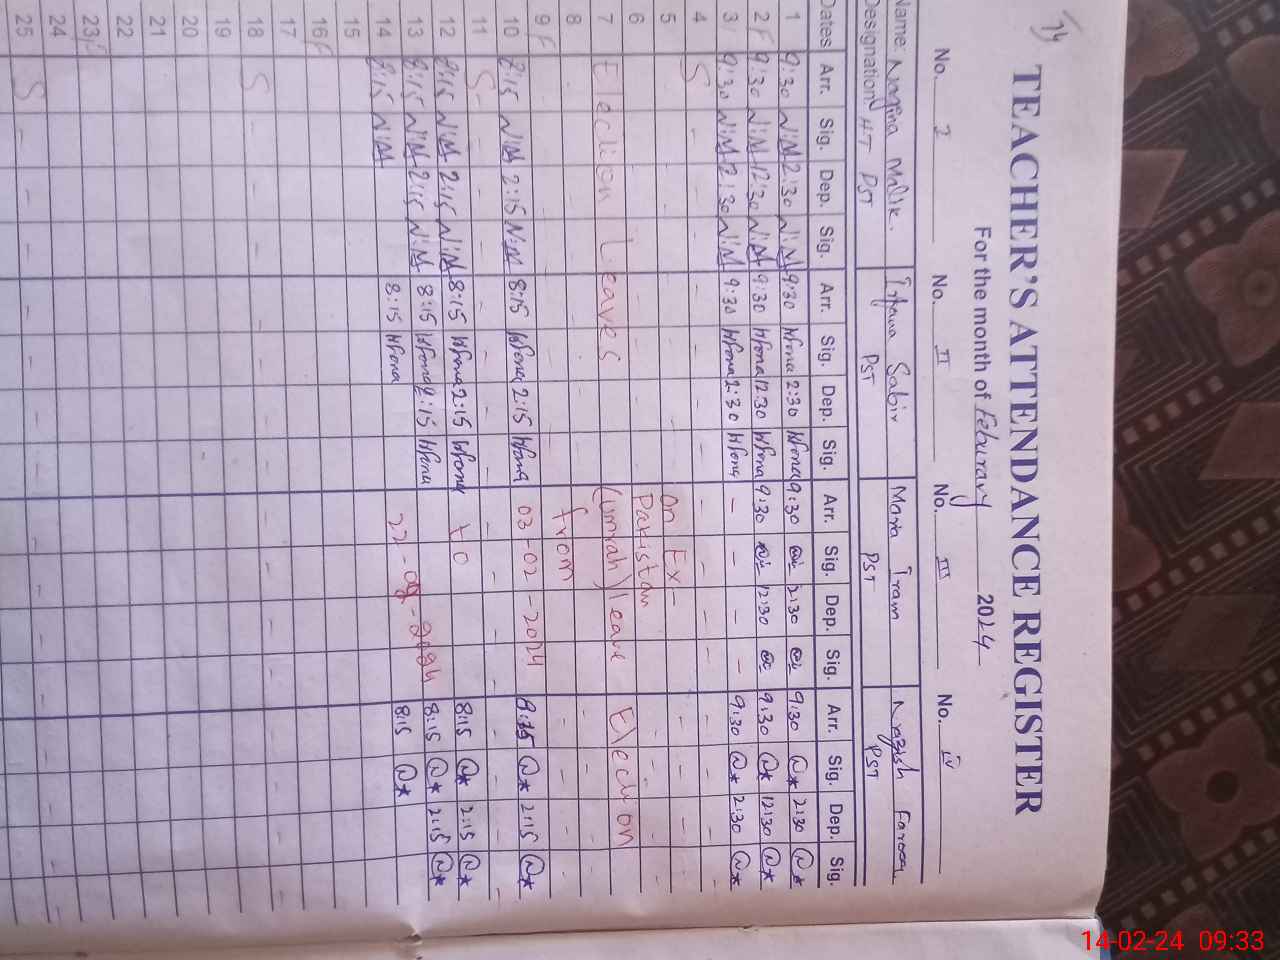 14
TEACHER'S ATTENDANCE REGISTER
For the month of Feburary 2024
No. I No. II No. III No. IV
Name: Nagina Malik. Sabir Maria Iram Farooq
Designation HT PST PST PST PST
Dates Arr. Sig. Dep. Sig. Arr. Sig. Dep. Sig. Arr. Sig. Dep. Sig. Arr. Sig. Dep. Sig.
1 9:30 N.M 2:30 N.M 9:30 2:30 9:30 2:30 9:30 2:30
2 F 9:30 N.M 12:30 N.M 9:30 12:30 9:30 12:30 9:30 12:30
3 9:30 N.M 2:30 N.M 9:30 2:30 - - - - 9:30 2:30
4 S - - -
5 On Ex-
6 Pakistan
7 Election Leaves (Umrah) leave Election
8 from
9 F
10 8:15 N.M 2:15 N.M 8:15 2:15 03-02-2024 8:15 2:15
11 S - - -
12 8:15 N.M 2:15 N.M 8:15 2:15 to 8:15 2:15
13 8:15 N.M 2:15 N.M 8:15 2:15 8:15 2:15
14 8:15 N.M 8:15 8:15
15
16 F
17
18 S - - -
19
20
21
22
23 F
24
25 S - - -
14-02-24 09:33